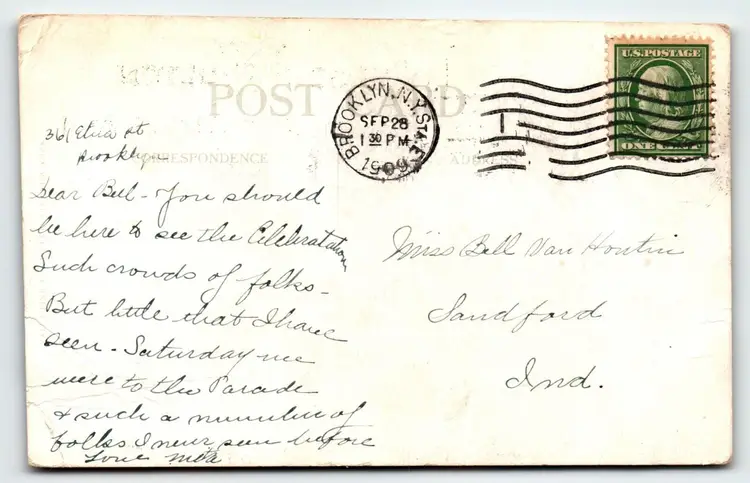 POST CARD
CORRESPONDENCE
ADDRESS
BROOKLYN, N.Y. STA. E
SEP 28
1 30 PM
1909
U.S. POSTAGE
ONE CENT
361 Etna st
Brooklyn
Dear Bell - You should
be here to see the Celebratation
Such crowds of folks -
But little that I have
seen - Saturday we
were to the Parade
& such a number of
folks I never seen before
Love
Miss Bell Van Houtin
Sandford
Ind.